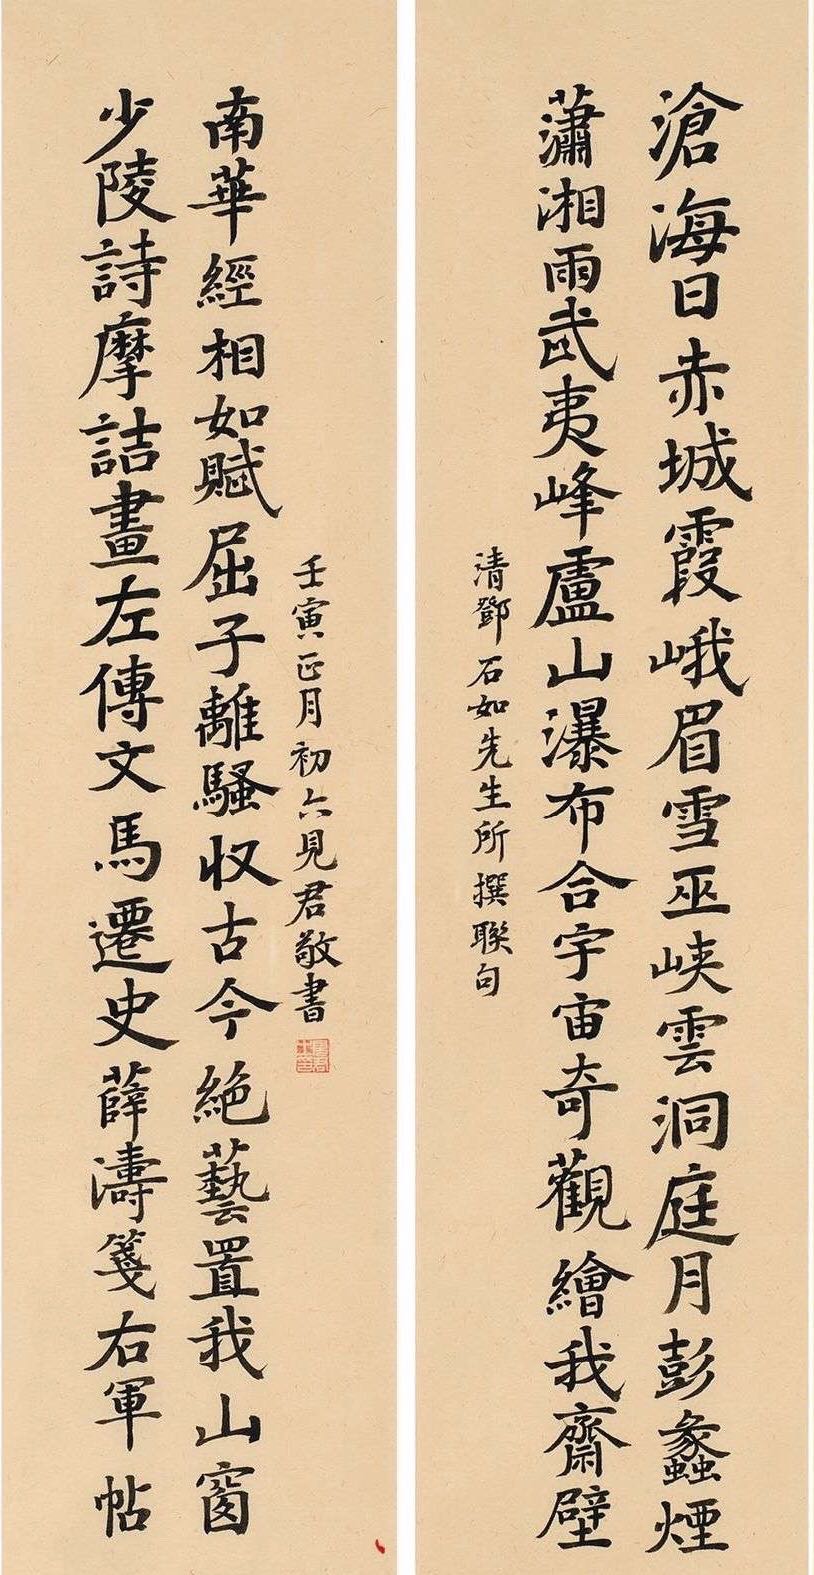 滄海日赤城霞峨眉雪巫峽雲洞庭月彭蠡煙
瀟湘雨武夷峰廬山瀑布合宇宙奇觀繪我齋壁
清鄧石如先生所撰聯句
少陵詩摩詰畫左傳文馬遷史薛濤箋右軍帖
南華經相如賦屈子離騷收古今絕藝置我山窗
壬寅正月初六見君敬書